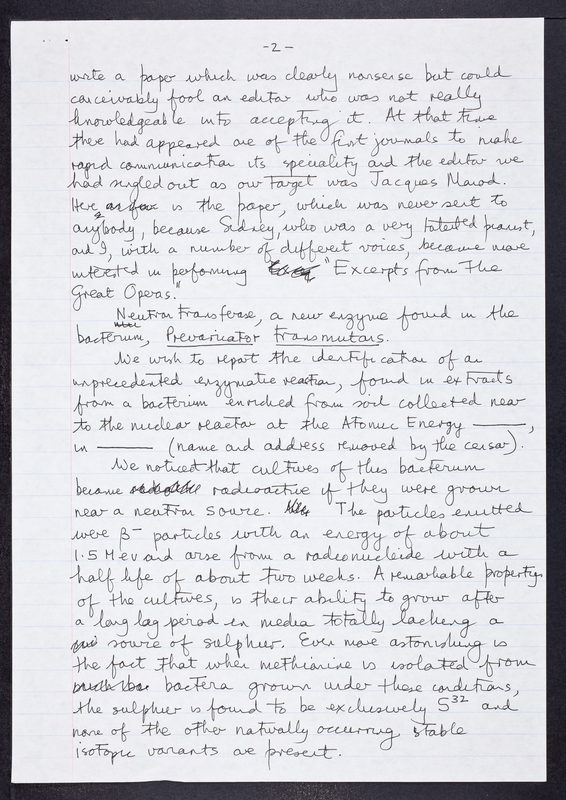 -2-
write a paper which was clearly nonsense but could
conceivably fool an editor who was not really
knowledgeable into accepting it. At that time
there had appeared one of the first journals to make
rapid communication its speciality and the editor we
had singled out as our target was Jacques Monod.
Here is the paper, which was never sent to
anybody, because Sidney, who was a very talented pianist,
and I, with a number of different voices, became more
interested in performing "Excerpts from The
Great Operas."
Neutron Transferase, a new enzyme found in the
bacterium, Prevaricator transmutans.
We wish to report the identification of an
unprecedented enzymatic reaction, found in extracts
from a bacterium enriched from soil collected near
to the nuclear reactor at the Atomic Energy ——,
in —— (name and address removed by the censor).
We noticed that cultures of this bacterium
became radioactive if they were grown
near a neutron source. The particles emitted
were β- particles with an energy of about
1.5 Mev and arose from a radionucleide with a
half life of about two weeks. A remarkable property
of the cultures, is their ability to grow after
a long lag period in media totally lacking a
source of sulphur. Even more astonishing is
the fact that when methionine is isolated from
bacteria grown under these conditions,
the sulphur is found to be exclusively S32 and
none of the other naturally occurring stable
isotopic variants are present.